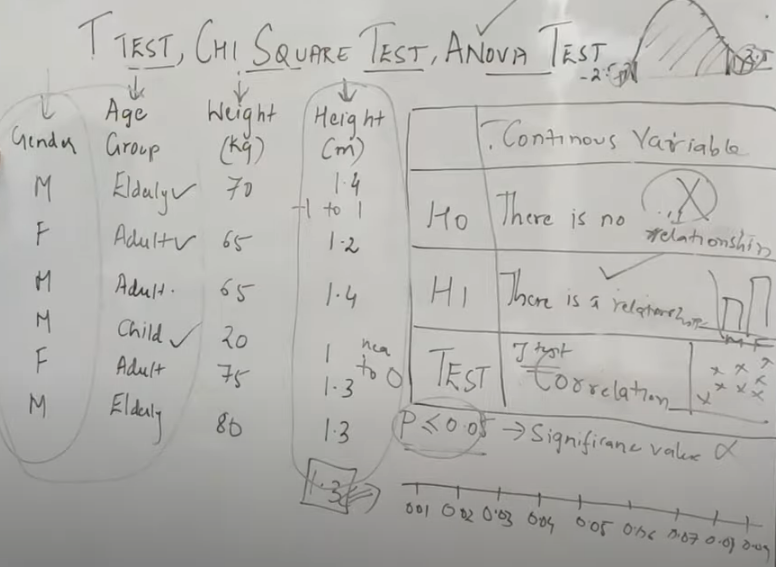 T TEST, CHI SQUARE TEST, ANOVA TEST
Gender
Age Group
Weight (Kg)
Height (m)
M Elderly 70 1.4
-1 to 1
F Adult 65 1.2
M Adult 65 1.4
M Child 20 1
F Adult 75 1.3
M Elderly 80 1.3
to 0
1.3
Continous Variable
H0 There is no relationship
H1 There is a relationship
M F
TEST T test
Correlation
P ≤ 0.05 → Significane value α
0.01 0.02 0.03 0.04 0.05 0.06 0.07 0.08 0.09